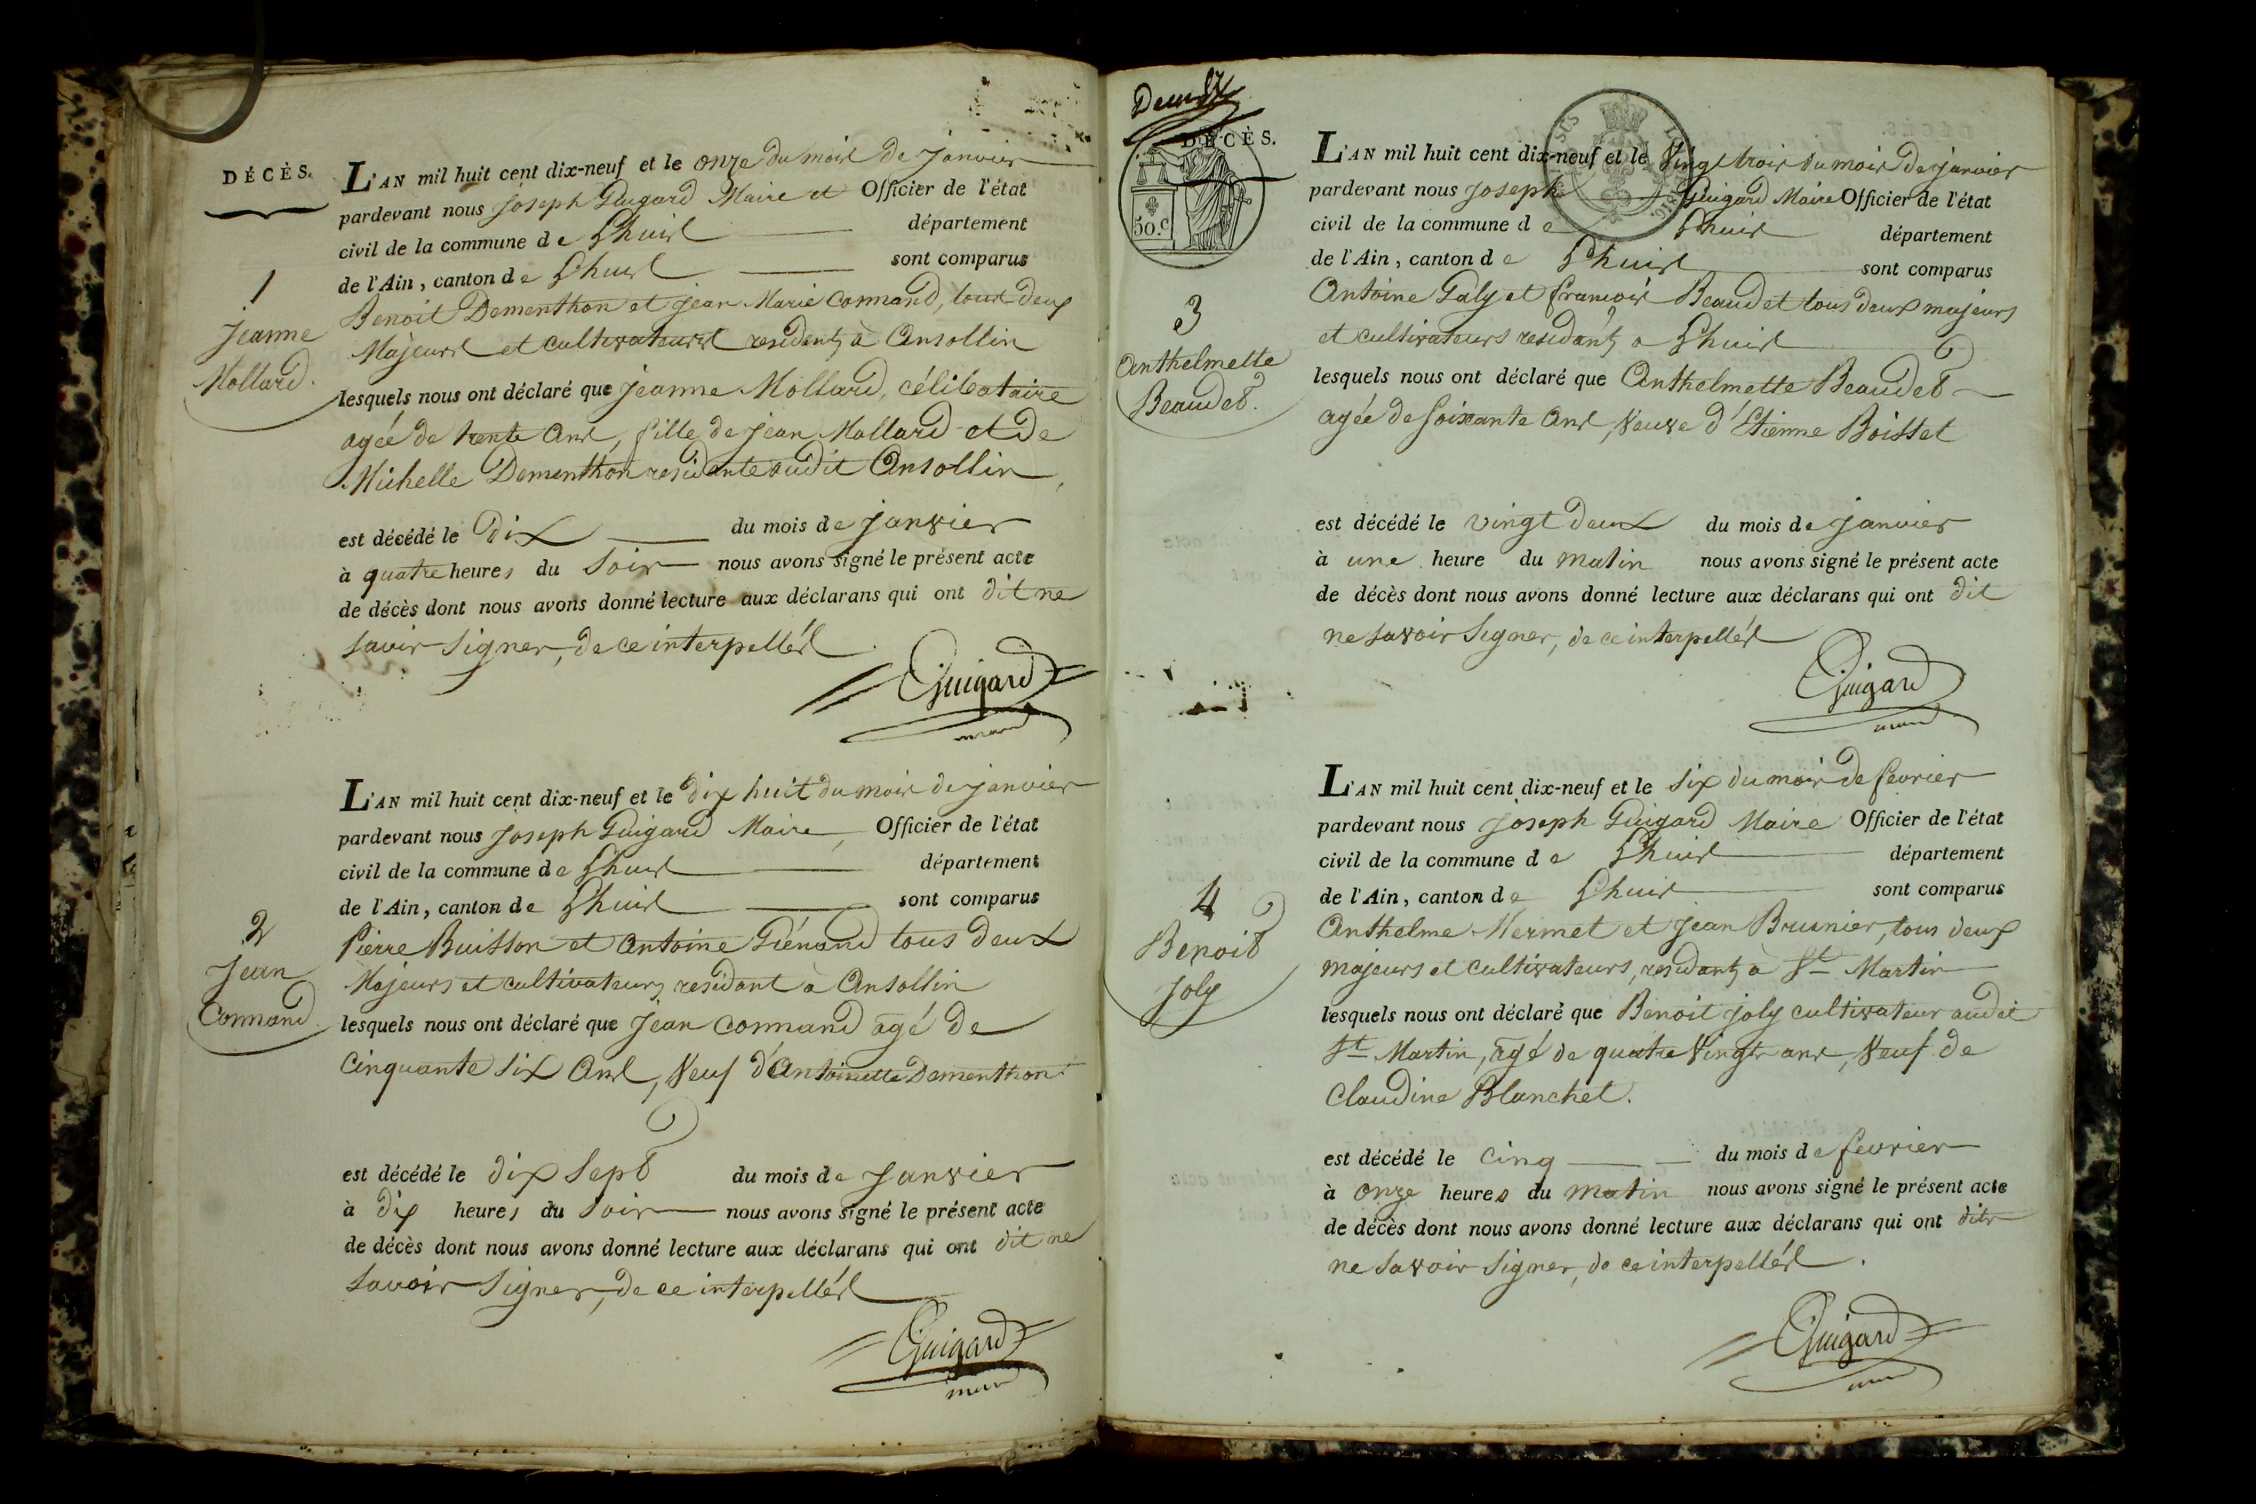 DÉCÈS.
L'AN mil huit cent dix-neuf et le onze du mois de janvier
pardevant nous joseph Guigard Maire et Officier de l'état
civil de la commune de Lhuis département
de l'Ain, canton de Lhuis sont comparus
Benoit Dementhon et jean Marie Connand, tous deux
Majeurs et cultivateurs residents à Ansollin
lesquels nous ont déclaré que jeanne Mollard, célibataire
agée de trente Ans, fille de jean Mollard et de
Michelle Dementhon residante audit Ansollin,
est décédé le Dix du mois de janvier
à quatre heures du Soir nous avons signé le présent acte
de décès dont nous avons donné lecture aux déclarans qui ont dit ne
savoir signer, de ce interpellés
Guigard
maire
1
jeanne
Mollard.
L'AN mil huit cent dix-neuf et le dix huit du mois de janvier
pardevant nous joseph Guigard Maire, Officier de l'état
civil de la commune de Lhuis département
de l'Ain, canton de Lhuis sont comparus
Pierre Buisson et Antoine Giénand tous deux
Majeurs et cultivateurs residant à Ansollin
lesquels nous ont déclaré que jean Connand agé de
Cinquante six Ans, Veuf d'Antoinette Dementhon
est décédé le dix sept du mois de janvier
à dix heures du Soir nous avons signé le présent acte
de décès dont nous avons donné lecture aux déclarans qui ont dit ne
savoir signer, de ce interpellés
Guigard
maire
2
jean
Connand
Deux
DÉCÈS.
50.C
L'AN mil huit cent dix-neuf et le Vingt trois du mois de janvier
pardevant nous joseph Guigard Maire Officier de l'état
civil de la commune de Lhuis département
de l'Ain, canton de Lhuis sont comparus
Antoine Galy et francois Beaudet tous deux majeurs
et cultivateurs residants a Lhuis
lesquels nous ont déclaré que Anthelmette Beaudet
agée de soixante Ans, Veuve d'Etienne Boisset
est décédé le vingt deux du mois de janvier
à une heure du matin nous avons signé le présent acte
de décès dont nous avons donné lecture aux déclarans qui ont dit
ne savoir signer, de ce interpellés
Guigard
maire
3
Anthelmette
Beaudet.
L'AN mil huit cent dix-neuf et le six du mois de fevrier
pardevant nous joseph Guigard Maire Officier de l'état
civil de la commune de Lhuis département
de l'Ain, canton de Lhuis sont comparus
Anthelme Mermet et jean Brunier, tous deux
majeurs et cultivateurs, residants à St Martin
lesquels nous ont déclaré que Benoit joly cultivateur audit
St Martin, agé de quatre Vingts ans, Veuf de
Claudine Blanchet.
est décédé le cinq du mois de fevrier
à onze heures du matin nous avons signé le présent acte
de décès dont nous avons donné lecture aux déclarans qui ont dits
ne savoir signer, de ce interpellés.
Guigard
maire
4
Benoit
joly